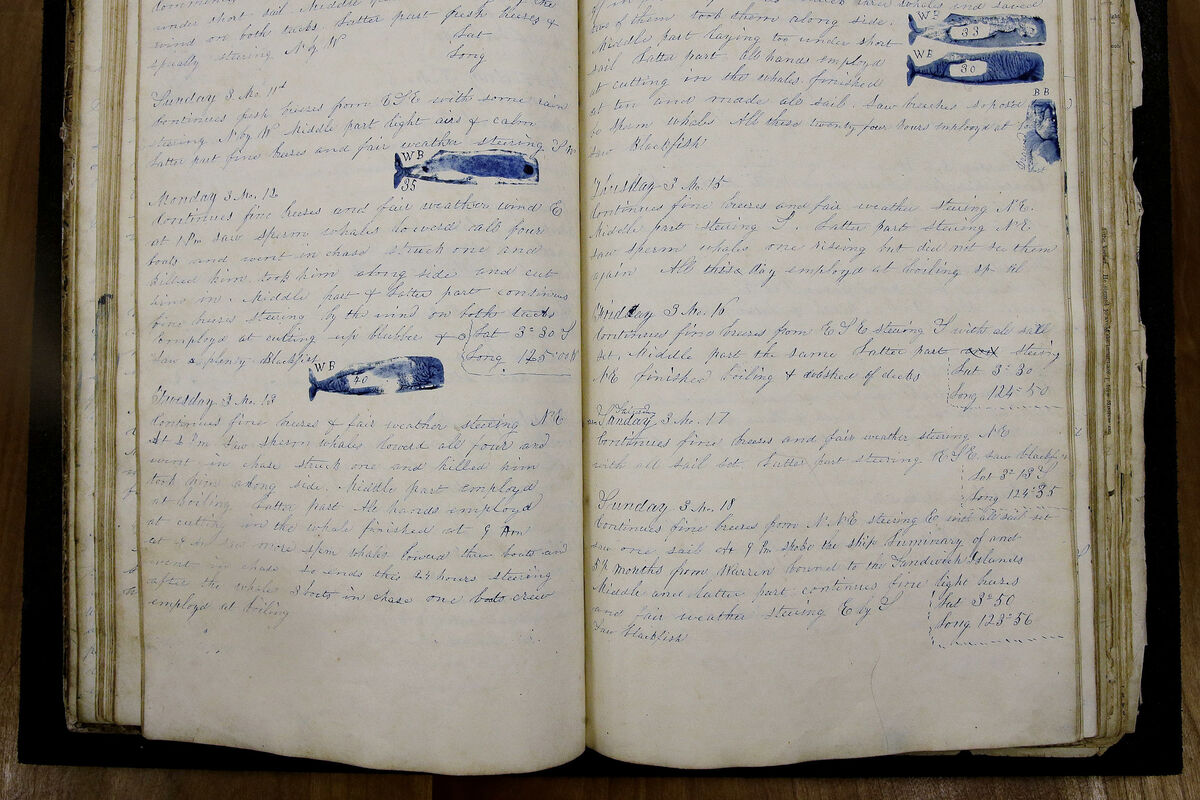 under short sail Middle part
wind on both tacks. Latter part fresh breezes &
steering N by W Lat
Long
Sunday 3 Mo. 11th
Continues fresh breezes from ESE with some rain
steering N by W Middle part light airs & calm
Latter part fine breses and fair weather steering
WB
35
Monday 3 Mo. 12
Continues fine breses and fair weather wind E
at 1 Pm saw sperm whales lowerd all four
boats and went in chase struck one and
killed him took him along side and cut
him in. Middle part & Latter part continues
fine breses steering by the wind on both tacks
Employd at cutting up blubber &
Saw a plenty Blackfish
Lat 3° 30 S
Long 125° 00 W
WB
40
Tuesday 3 Mo. 13
Continues fine breses & fair weather steering NE
At 1 Pm saw sperm whales lowerd all four and
went in chase struck one and killed him
took him along side. Middle part employd
at boiling Latter part All hands employd
at cutting in the whale finished at 9 Am
at saw more sperm whales lowerd three boats and
went in chase so ends this 24 hours steering
after the whale 3 boats in chase one boats crew
employd at boiling
whales and saved
two of them took them along side.
Middle part laying too under short
sail Latter part All hands employd
at cutting in the whales finished
at ten and made all sail. Saw breches
be sperm whales All these twenty four hours employd at
saw Blackfish
WB
33
WB
30
BB
Thursday 3 Mo. 15
Continues fine breezes and fair weather steering NE.
Middle part steering S. Latter part steering NE.
Saw sperm whales one riseing but did not see them
again All thise day employd at boiling
Friday 3 Mo. 16
Continues fine breezes from ESE steering S with all sail
set, Middle part the same Latter part steering
NE finished boiling & washed of decks
Lat 3° 30
Long 124° 50
Saturday
Sunday 3 Mo. 17
Continues fine breezes and fair weather steering NE
with all sail set, Latter part steering ESE, saw blackfish
Lat 3° 13 S
Long 124° 35
Sunday 3 Mo. 18
Continues fine breezes from NNE steering E with all sail set
saw one sail At 9 Pm spoke the ship Luminary of and
5½ months from Warren bound to the Sandwich Islands
Middle and Latter part continues fine light breezes
and fair weather steering E by S
Saw blackfish
Lat 3° 50
Long 123° 56